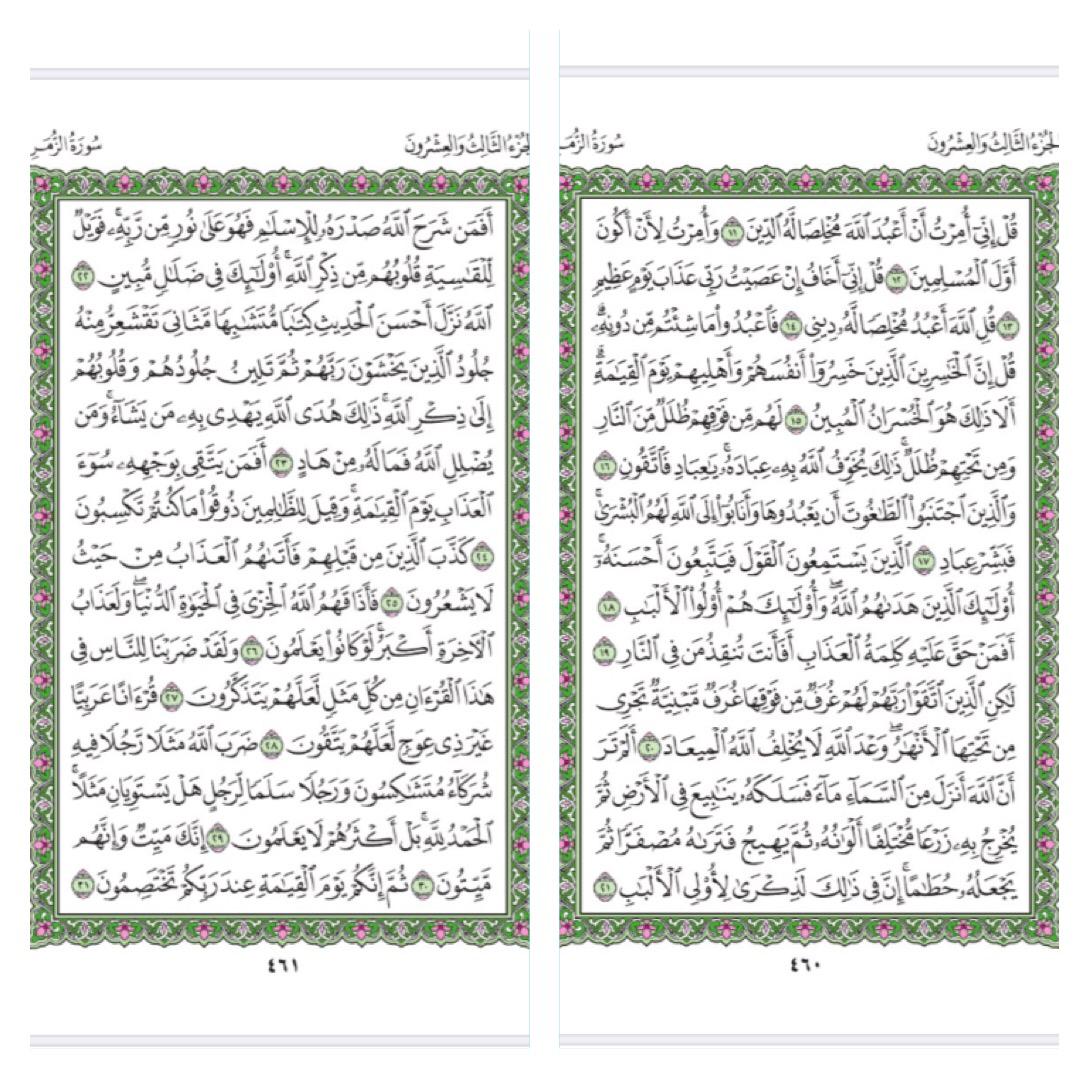 الجُزْءُ الثَّالِثُ وَالعِشْرُونَ
سُورَةُ الزُّمَرِ
قُلْ إِنِّيٓ أُمِرْتُ أَنْ أَعْبُدَ ٱللَّهَ مُخْلِصًا لَّهُ ٱلدِّينَ ١١ وَأُمِرْتُ لِأَنْ أَكُونَ
أَوَّلَ ٱلْمُسْلِمِينَ ١٢ قُلْ إِنِّيٓ أَخَافُ إِنْ عَصَيْتُ رَبِّي عَذَابَ يَوْمٍ عَظِيمٍ
١٣ قُلِ ٱللَّهَ أَعْبُدُ مُخْلِصًا لَّهُۥ دِينِي ١٤ فَٱعْبُدُوا۟ مَا شِئْتُم مِّن دُونِهِۦۗ
قُلْ إِنَّ ٱلْخَٰسِرِينَ ٱلَّذِينَ خَسِرُوٓا۟ أَنفُسَهُمْ وَأَهْلِيهِمْ يَوْمَ ٱلْقِيَٰمَةِۗ
أَلَا ذَٰلِكَ هُوَ ٱلْخُسْرَانُ ٱلْمُبِينُ ١٥ لَهُم مِّن فَوْقِهِمْ ظُلَلٌ مِّنَ ٱلنَّارِ
وَمِن تَحْتِهِمْ ظُلَلٌۚ ذَٰلِكَ يُخَوِّفُ ٱللَّهُ بِهِۦ عِبَادَهُۥۚ يَٰعِبَادِ فَٱتَّقُونِ ١٦
وَٱلَّذِينَ ٱجْتَنَبُوا۟ ٱلطَّٰغُوتَ أَن يَعْبُدُوهَا وَأَنَابُوٓا۟ إِلَى ٱللَّهِ لَهُمُ ٱلْبُشْرَىٰۚ
فَبَشِّرْ عِبَادِ ١٧ ٱلَّذِينَ يَسْتَمِعُونَ ٱلْقَوْلَ فَيَتَّبِعُونَ أَحْسَنَهُۥٓۚ
أُو۟لَٰٓئِكَ ٱلَّذِينَ هَدَىٰهُمُ ٱللَّهُۖ وَأُو۟لَٰٓئِكَ هُمْ أُو۟لُوا۟ ٱلْأَلْبَٰبِ ١٨
أَفَمَنْ حَقَّ عَلَيْهِ كَلِمَةُ ٱلْعَذَابِ أَفَأَنتَ تُنقِذُ مَن فِي ٱلنَّارِ ١٩
لَٰكِنِ ٱلَّذِينَ ٱتَّقَوْا۟ رَبَّهُمْ لَهُمْ غُرَفٌ مِّن فَوْقِهَا غُرَفٌ مَّبْنِيَّةٌ تَجْرِي
مِن تَحْتِهَا ٱلْأَنْهَٰرُۖ وَعْدَ ٱللَّهِ لَا يُخْلِفُ ٱللَّهُ ٱلْمِيعَادَ ٢٠ أَلَمْ تَرَ
أَنَّ ٱللَّهَ أَنزَلَ مِنَ ٱلسَّمَآءِ مَآءً فَسَلَكَهُۥ يَنَٰبِيعَ فِي ٱلْأَرْضِ ثُمَّ
يُخْرِجُ بِهِۦ زَرْعًا مُّخْتَلِفًا أَلْوَٰنُهُۥ ثُمَّ يَهِيجُ فَتَرَىٰهُ مُصْفَرًّا ثُمَّ
يَجْعَلُهُۥ حُطَٰمًاۚ إِنَّ فِي ذَٰلِكَ لَذِكْرَىٰ لِأُو۟لِي ٱلْأَلْبَٰبِ ٢١
٤٦٠
الجُزْءُ الثَّالِثُ وَالعِشْرُونَ
سُورَةُ الزُّمَرِ
أَفَمَن شَرَحَ ٱللَّهُ صَدْرَهُۥ لِلْإِسْلَٰمِ فَهُوَ عَلَىٰ نُورٍ مِّن رَّبِّهِۦۚ فَوَيْلٌ
لِّلْقَٰسِيَةِ قُلُوبُهُم مِّن ذِكْرِ ٱللَّهِۚ أُو۟لَٰٓئِكَ فِي ضَلَٰلٍ مُّبِينٍ ٢٢
ٱللَّهُ نَزَّلَ أَحْسَنَ ٱلْحَدِيثِ كِتَٰبًا مُّتَشَٰبِهًا مَّثَانِيَ تَقْشَعِرُّ مِنْهُ
جُلُودُ ٱلَّذِينَ يَخْشَوْنَ رَبَّهُمْ ثُمَّ تَلِينُ جُلُودُهُمْ وَقُلُوبُهُمْ
إِلَىٰ ذِكْرِ ٱللَّهِۚ ذَٰلِكَ هُدَى ٱللَّهِ يَهْدِي بِهِۦ مَن يَشَآءُۚ وَمَن
يُضْلِلِ ٱللَّهُ فَمَا لَهُۥ مِنْ هَادٍ ٢٣ أَفَمَن يَتَّقِي بِوَجْهِهِۦ سُوٓءَ
ٱلْعَذَابِ يَوْمَ ٱلْقِيَٰمَةِۚ وَقِيلَ لِلظَّٰلِمِينَ ذُوقُوا۟ مَا كُنتُمْ تَكْسِبُونَ
٢٤ كَذَّبَ ٱلَّذِينَ مِن قَبْلِهِمْ فَأَتَىٰهُمُ ٱلْعَذَابُ مِنْ حَيْثُ
لَا يَشْعُرُونَ ٢٥ فَأَذَاقَهُمُ ٱللَّهُ ٱلْخِزْيَ فِي ٱلْحَيَوٰةِ ٱلدُّنْيَاۖ وَلَعَذَابُ
ٱلْءَاخِرَةِ أَكْبَرُۚ لَوْ كَانُوا۟ يَعْلَمُونَ ٢٦ وَلَقَدْ ضَرَبْنَا لِلنَّاسِ فِي
هَٰذَا ٱلْقُرْءَانِ مِن كُلِّ مَثَلٍ لَّعَلَّهُمْ يَتَذَكَّرُونَ ٢٧ قُرْءَانًا عَرَبِيًّا
غَيْرَ ذِي عِوَجٍ لَّعَلَّهُمْ يَتَّقُونَ ٢٨ ضَرَبَ ٱللَّهُ مَثَلًا رَّجُلًا فِيهِ
شُرَكَآءُ مُتَشَٰكِسُونَ وَرَجُلًا سَلَمًا لِّرَجُلٍ هَلْ يَسْتَوِيَانِ مَثَلًاۚ
ٱلْحَمْدُ لِلَّهِۚ بَلْ أَكْثَرُهُمْ لَا يَعْلَمُونَ ٢٩ إِنَّكَ مَيِّتٌ وَإِنَّهُم
مَّيِّتُونَ ٣٠ ثُمَّ إِنَّكُمْ يَوْمَ ٱلْقِيَٰمَةِ عِندَ رَبِّكُمْ تَخْتَصِمُونَ ٣١
٤٦١